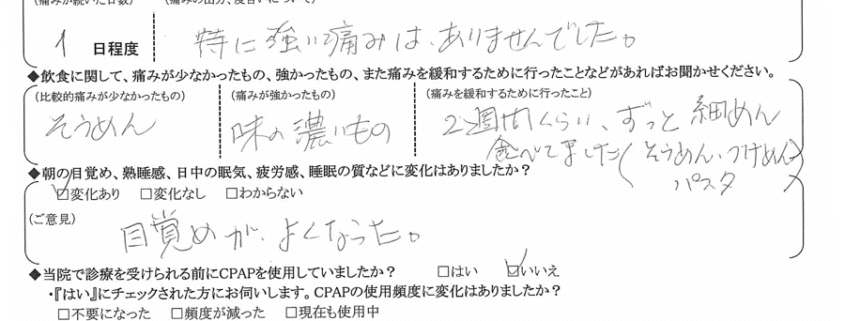 1 日程度
特に強い痛みは、ありませんでした。
◆飲食に関して、痛みが少なかったもの、強かったもの、また痛みを緩和するために行ったことなどがあればお聞かせください。
(比較的痛みが少なかったもの) (痛みが強かったもの) (痛みを緩和するために行ったこと)
そうめん
味の濃いもの
2週間くらい、ずっと細めん
食べてました(そうめん、つけめん
パスタ)
◆朝の目覚め、熟睡感、日中の眠気、疲労感、睡眠の質などに変化はありましたか？
☑変化あり □変化なし □わからない
(ご意見)
目覚めが、よくなった。
◆当院で診療を受けられる前にCPAPを使用していましたか？ □はい ☑いいえ
・『はい』にチェックされた方にお伺いします。CPAPの使用頻度に変化はありましたか？
□不要になった □頻度が減った □現在も使用中